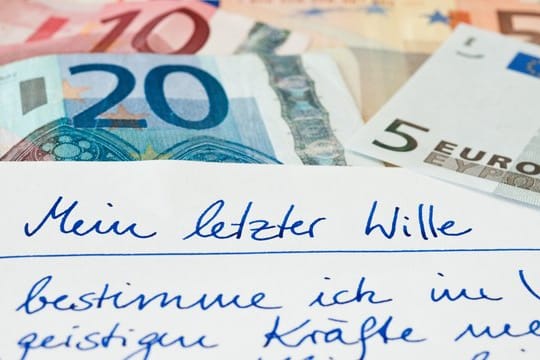 10
20
5 EURO
ΕΥΡΩ
Mein letzter Wille
bestimme ich im
geistigen Kräfte